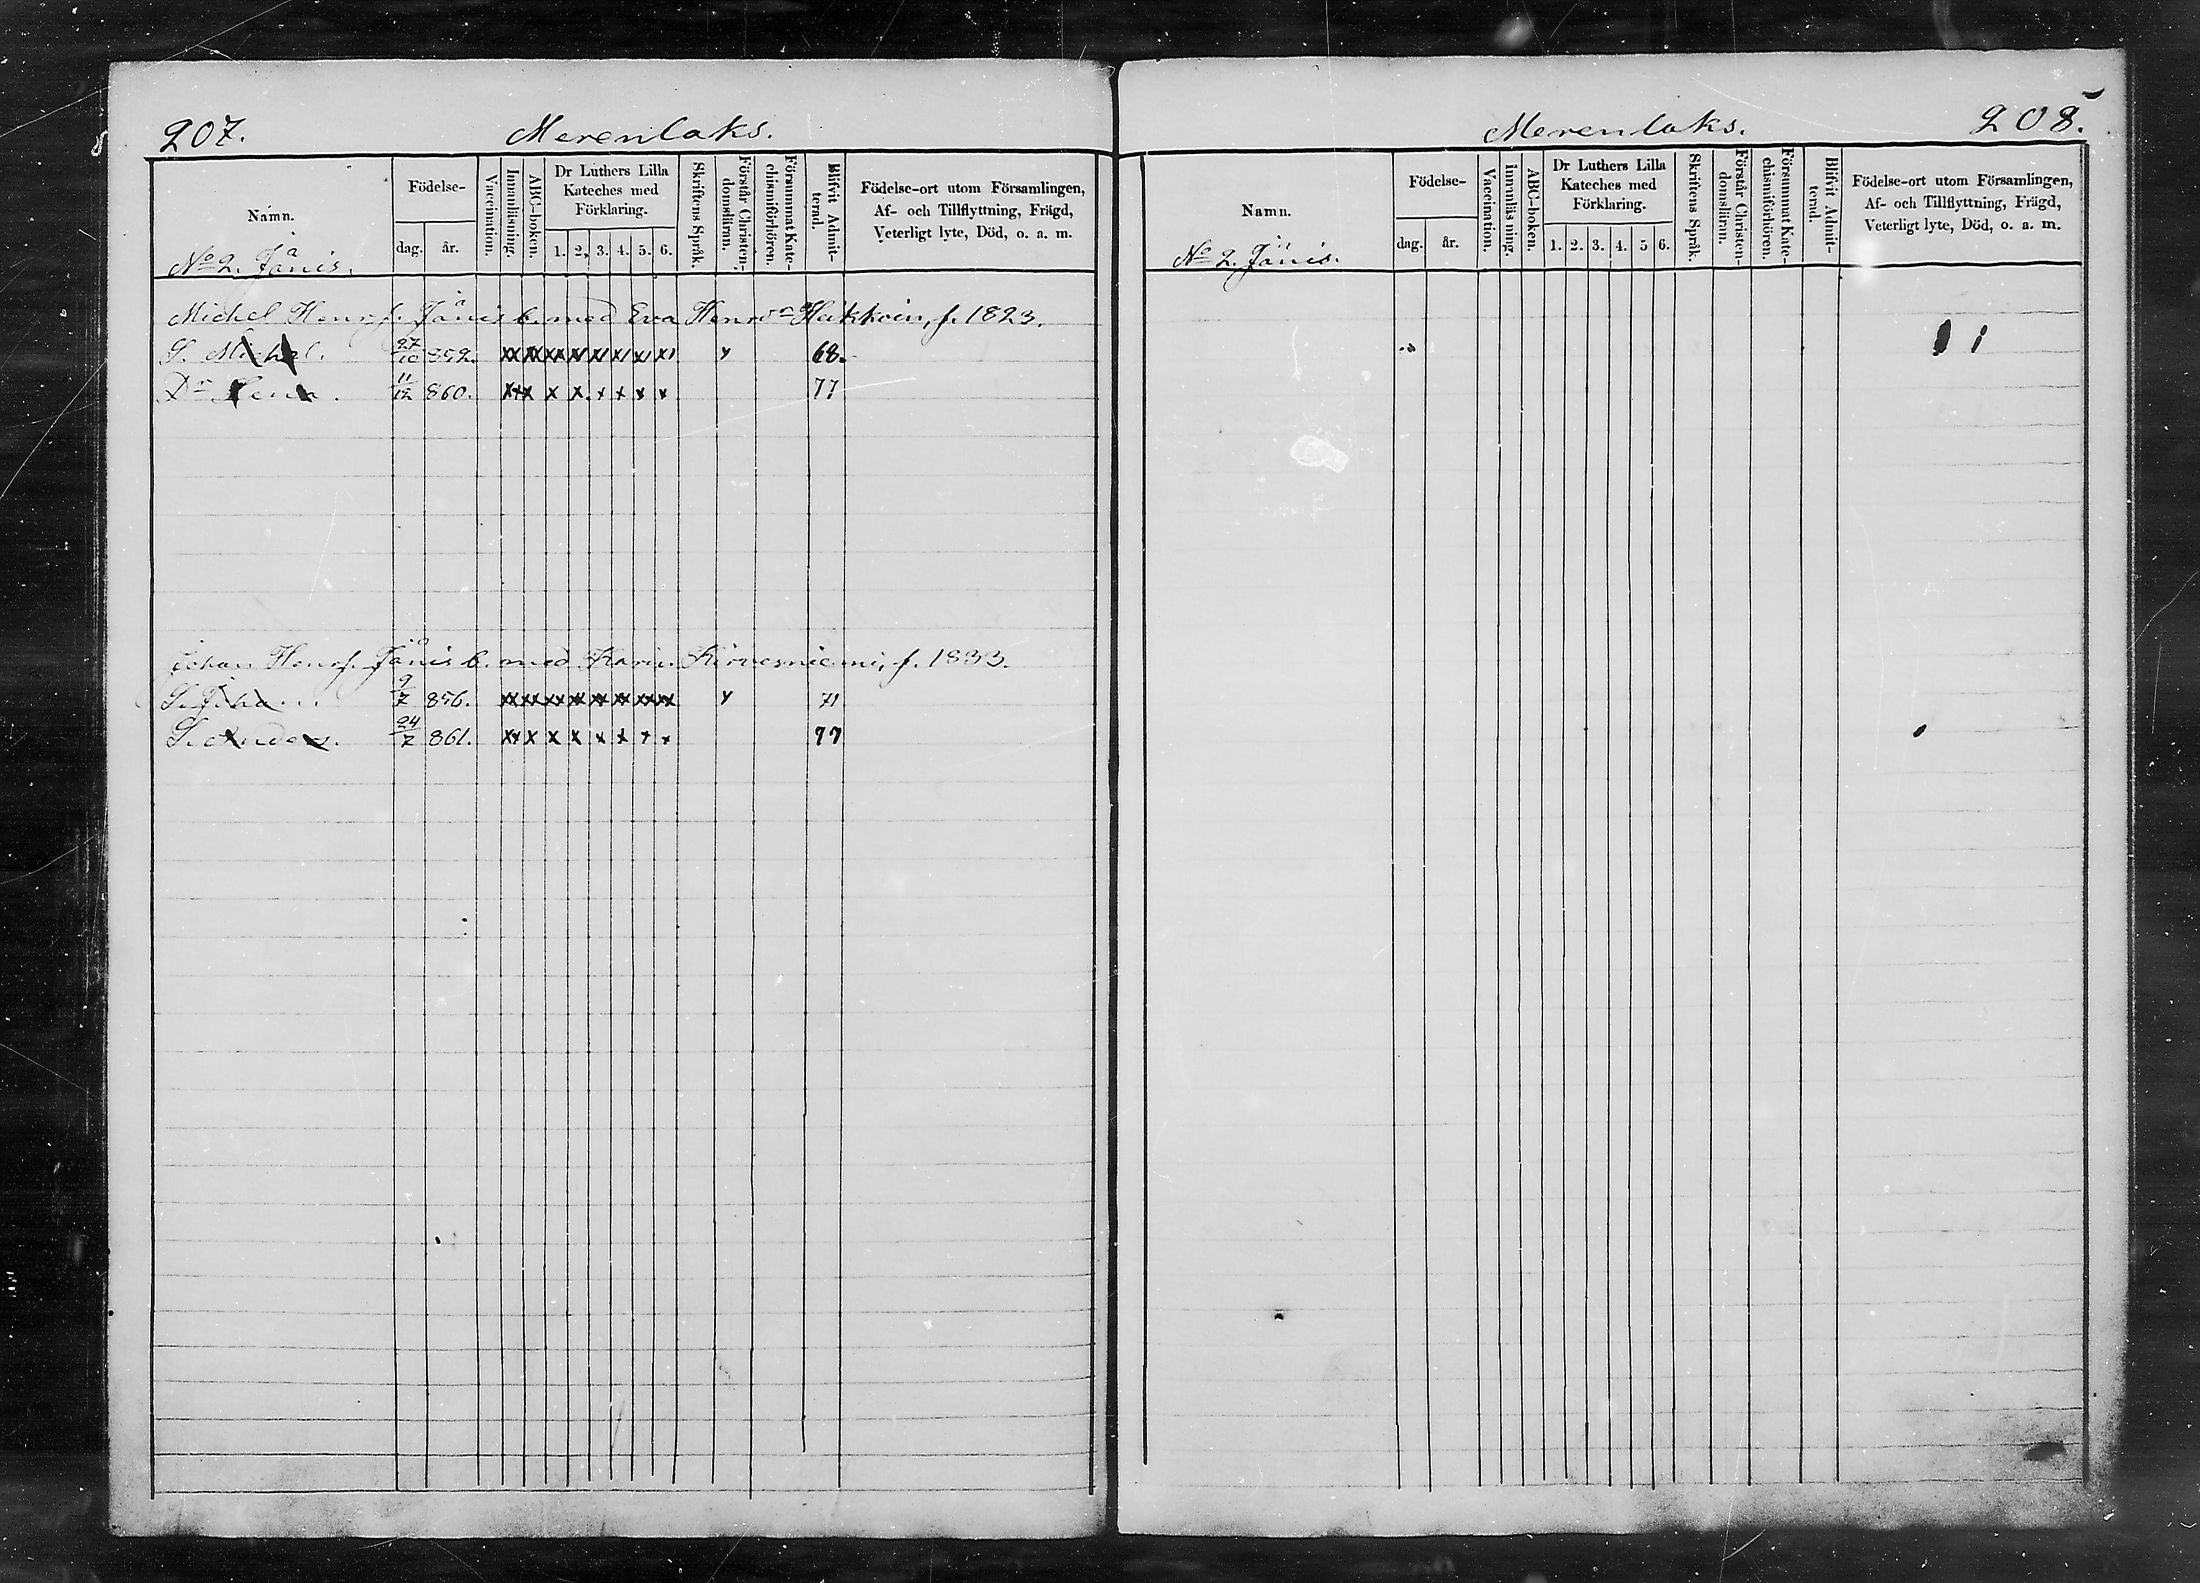 207. Merenlaks.
Namn. Födelse- dag. år. Vaccination. Innanläsning. ABC-boken. Dr Luthers Lilla Kateches med Förklaring. 1. 2. 3. 4. 5. 6. Skriftens Språk. Förstår Christendomsläran. Försummat Katechismiförhören. Blifvit Admitterad. Födelse-ort utom Församlingen, Af- och Tillflyttning, Frägd, Veterligt lyte, Död, o. a. m.
No 2. Jänis.
Michel Henr.s. Jänis b. med Eva Henr.dr Hakkoin, f. 1823.
S. Michel. 27/10 852. xx xx xx xx xx xx xx xx y 68.
Dr Lena. 11/12 860. xx x x x x x x x 77
Johan Henr.s. Jänis b. med Karin Kirvesniemi, f. 1833.
S. Johan. 9/7 856. xx xx xx xx xx xx xx xx y 71
S. Anders. 24/7 861. xx x x x x x x x 77
Merenlaks. 208.
Namn. Födelse- dag. år. Vaccination. Innanläsning. ABC-boken. Dr Luthers Lilla Kateches med Förklaring. 1. 2. 3. 4. 5 6. Skriftens Språk. Förstår Christendomsläran. Försummat Katechismiförhören. Blifvit Admitterad. Födelse-ort utom Församlingen, Af- och Tillflyttning, Frägd, Veterligt lyte, Död, o. a. m.
No 2. Jänis.